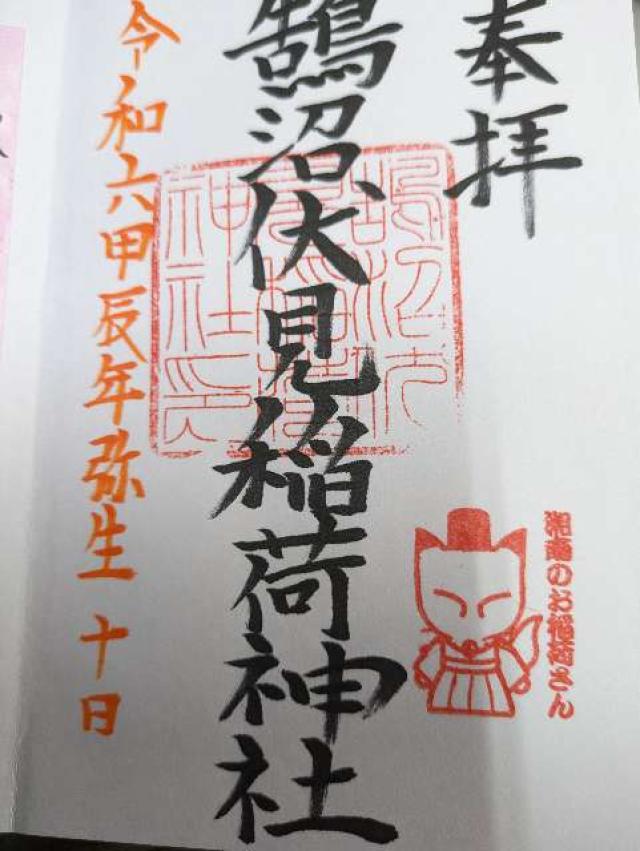 奉拝
鵠沼伏見稲荷神社
令和六甲辰年弥生十日
湘南のお稲荷さん
鵠沼伏
見稲荷
神社印